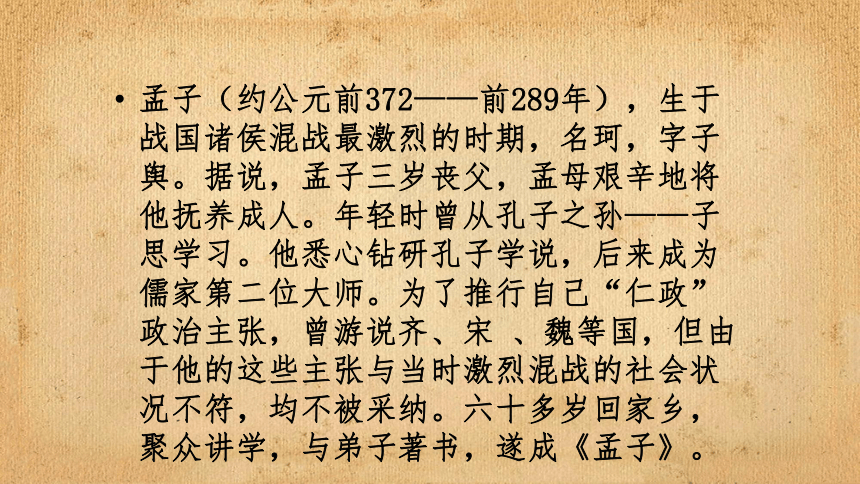 • 孟子（约公元前372——前289年），生于
战国诸侯混战最激烈的时期，名珂，字子
舆。据说，孟子三岁丧父，孟母艰辛地将
他抚养成人。年轻时曾从孔子之孙——子
思学习。他悉心钻研孔子学说，后来成为
儒家第二位大师。为了推行自己“仁政”
政治主张，曾游说齐、宋 、魏等国，但由
于他的这些主张与当时激烈混战的社会状
况不符，均不被采纳。六十多岁回家乡，
聚众讲学，与弟子著书，遂成《孟子》。